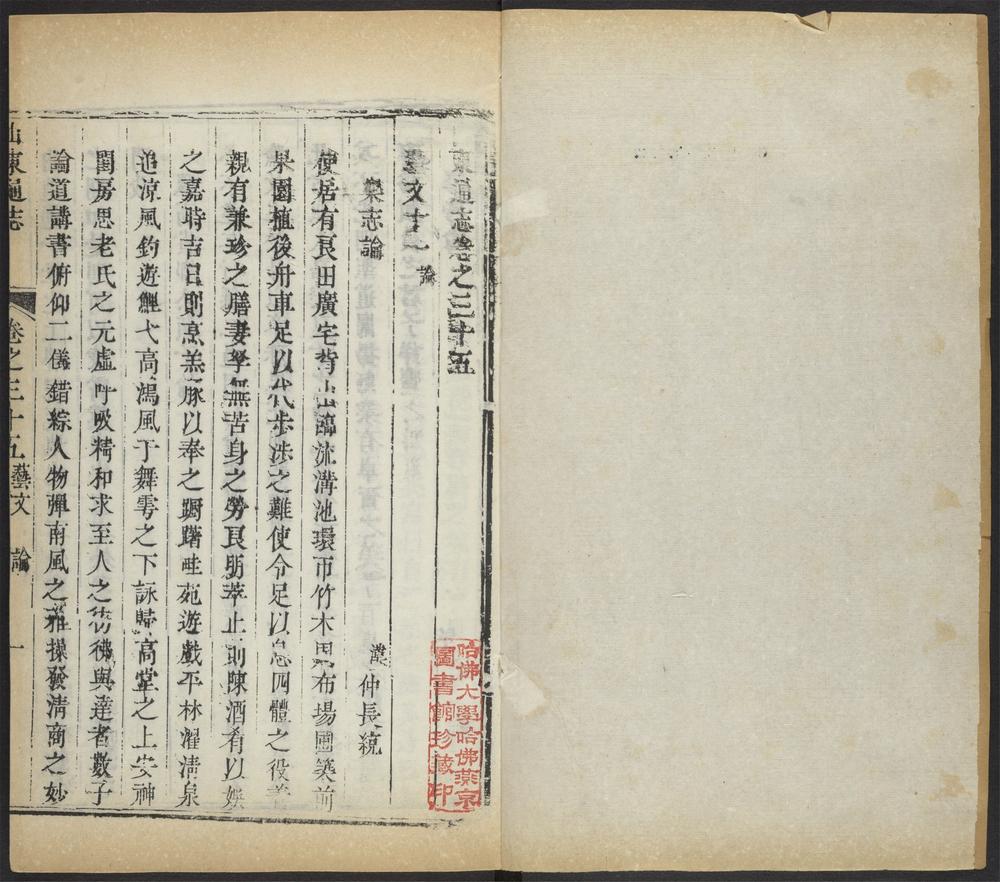 東通志卷之三十五
藝文十一 論
樂志論
漢 仲長統
使居有良田廣宅背山臨流溝池環帀竹木周布場圃築前
果園植後舟車足以代步涉之難使令足以息四體之役養
親有兼珍之膳妻孥無苦身之勞良朋萃止則陳酒肴以娛
之嘉時吉日則烹羔豚以奉之躕躇畦苑遊戲平林濯清泉
追涼風釣遊鯉弋高鴻風于舞雩之下詠歸高堂之上安神
閨房思老氏之元虛呼吸精和求至人之彷彿與達者數子
論道講書俯仰二儀錯綜人物彈南風之雅操發清商之妙
山東通志 卷之三十五 藝文 論 一
哈佛大學哈佛燕京
圖書館珍藏印